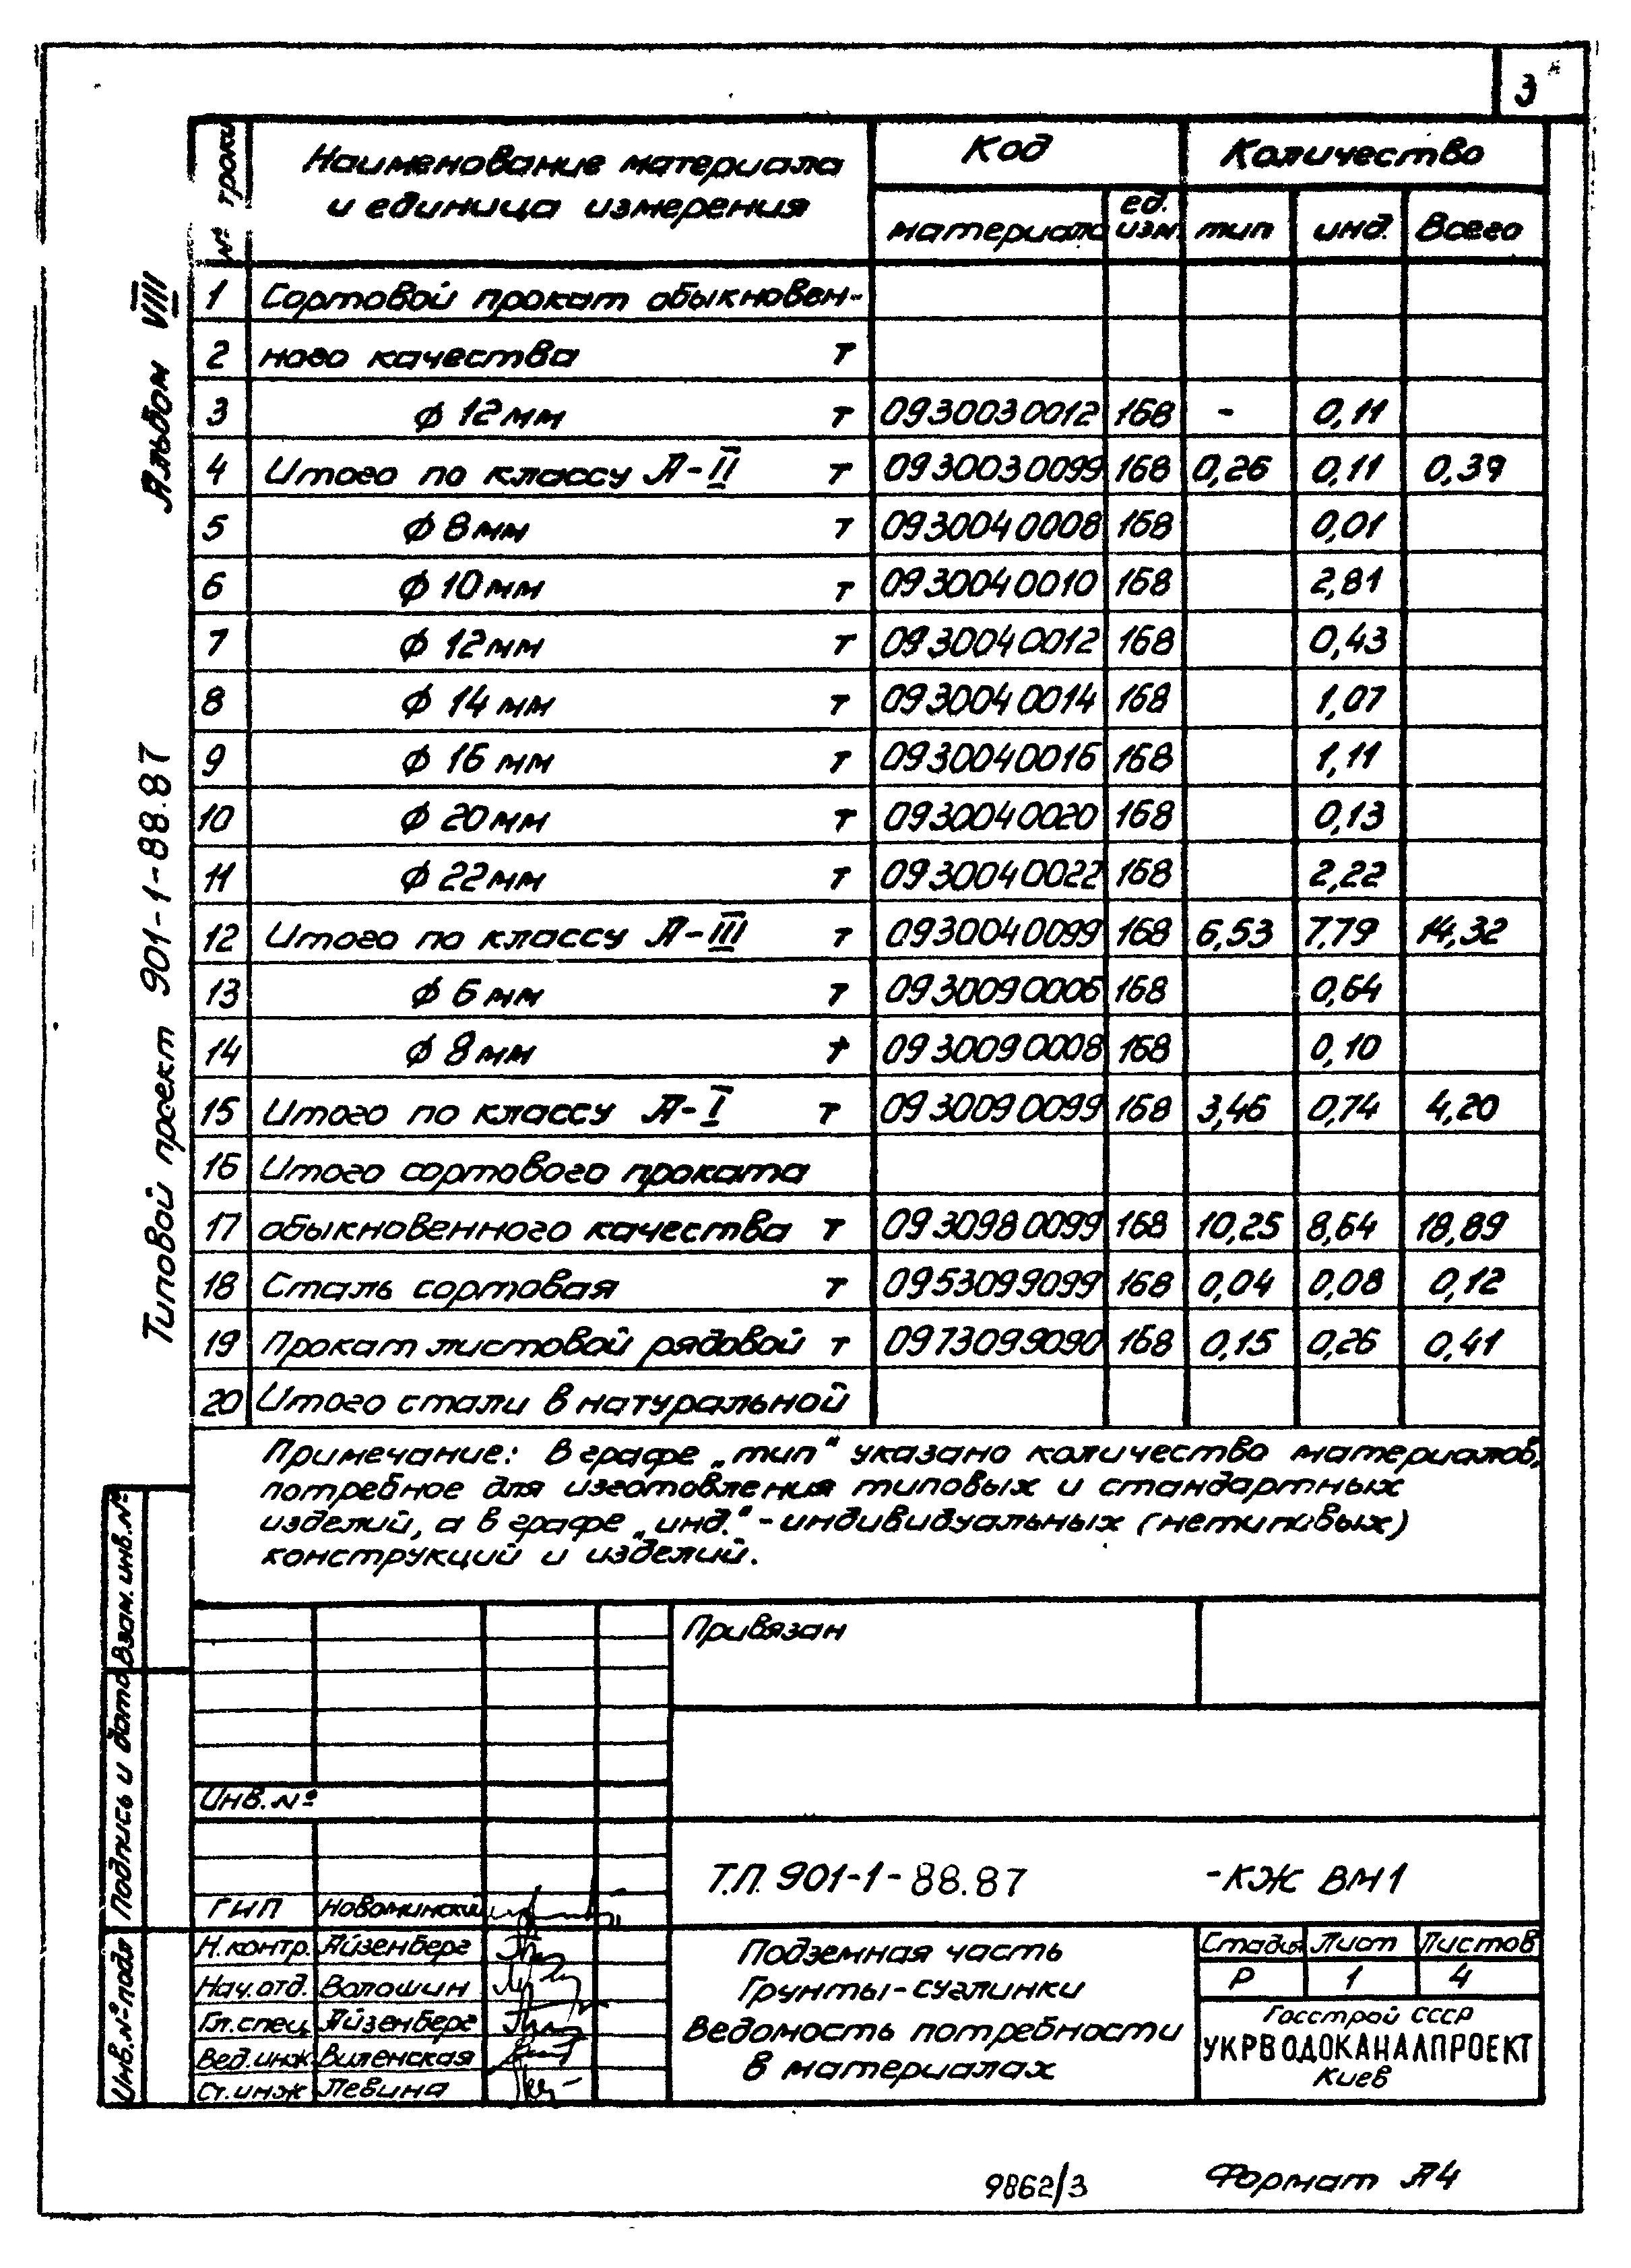 3
Альбом VIII
Типовой проект 901-1-88.87
№ строки
Наименование материала
и единица измерения
Код
Количество
материала
ед.
изм.
тип
инд.
Всего
1 Сортовой прокат обыкновен-
2 ного качества т
3 ф 12 мм т 0930030012 168 - 0,11
4 Итого по классу А-II т 0930030099 168 0,26 0,11 0,37
5 ф 8 мм т 0930040008 168 0,01
6 ф 10 мм т 0930040010 168 2,81
7 ф 12 мм т 0930040012 168 0,43
8 ф 14 мм т 0930040014 168 1,07
9 ф 16 мм т 0930040016 168 1,11
10 ф 20 мм т 0930040020 168 0,13
11 ф 22 мм т 0930040022 168 2,22
12 Итого по классу А-III т 0930040099 168 6,53 7,79 14,32
13 ф 6 мм т 0930090006 168 0,64
14 ф 8 мм т 0930090008 168 0,10
15 Итого по классу А-I т 0930090099 168 3,46 0,74 4,20
16 Итого сортового проката
17 обыкновенного качества т 0930980099 168 10,25 8,64 18,89
18 Сталь сортовая т 0953099099 168 0,04 0,08 0,12
19 Прокат листовой рядовой т 0973099090 168 0,15 0,26 0,41
20 Итого стали в натуральной
Примечание: В графе „тип“ указано количество материалов,
потребное для изготовления типовых и стандартных
изделий, а в графе „инд.“ - индивидуальных (нетиповых)
конструкций и изделий.
Привязан
Инв. №
Взам. инв. №
Подпись и дата
Инв. № подл
Т.П. 901-1-88.87 -КЖ ВМ1
ГИП Новоминский
Н.контр. Айзенберг
Нач.отд. Волошин
Гл.спец. Айзенберг
Вед.инж. Виленская
Ст.инж Левина
Подземная часть
Грунты-суглинки
Ведомость потребности
в материалах
Стадия Лист Листов
Р 1 4
Госстрой СССР
УКРВОДОКАНАЛПРОЕКТ
Киев
9862/3
Формат А4